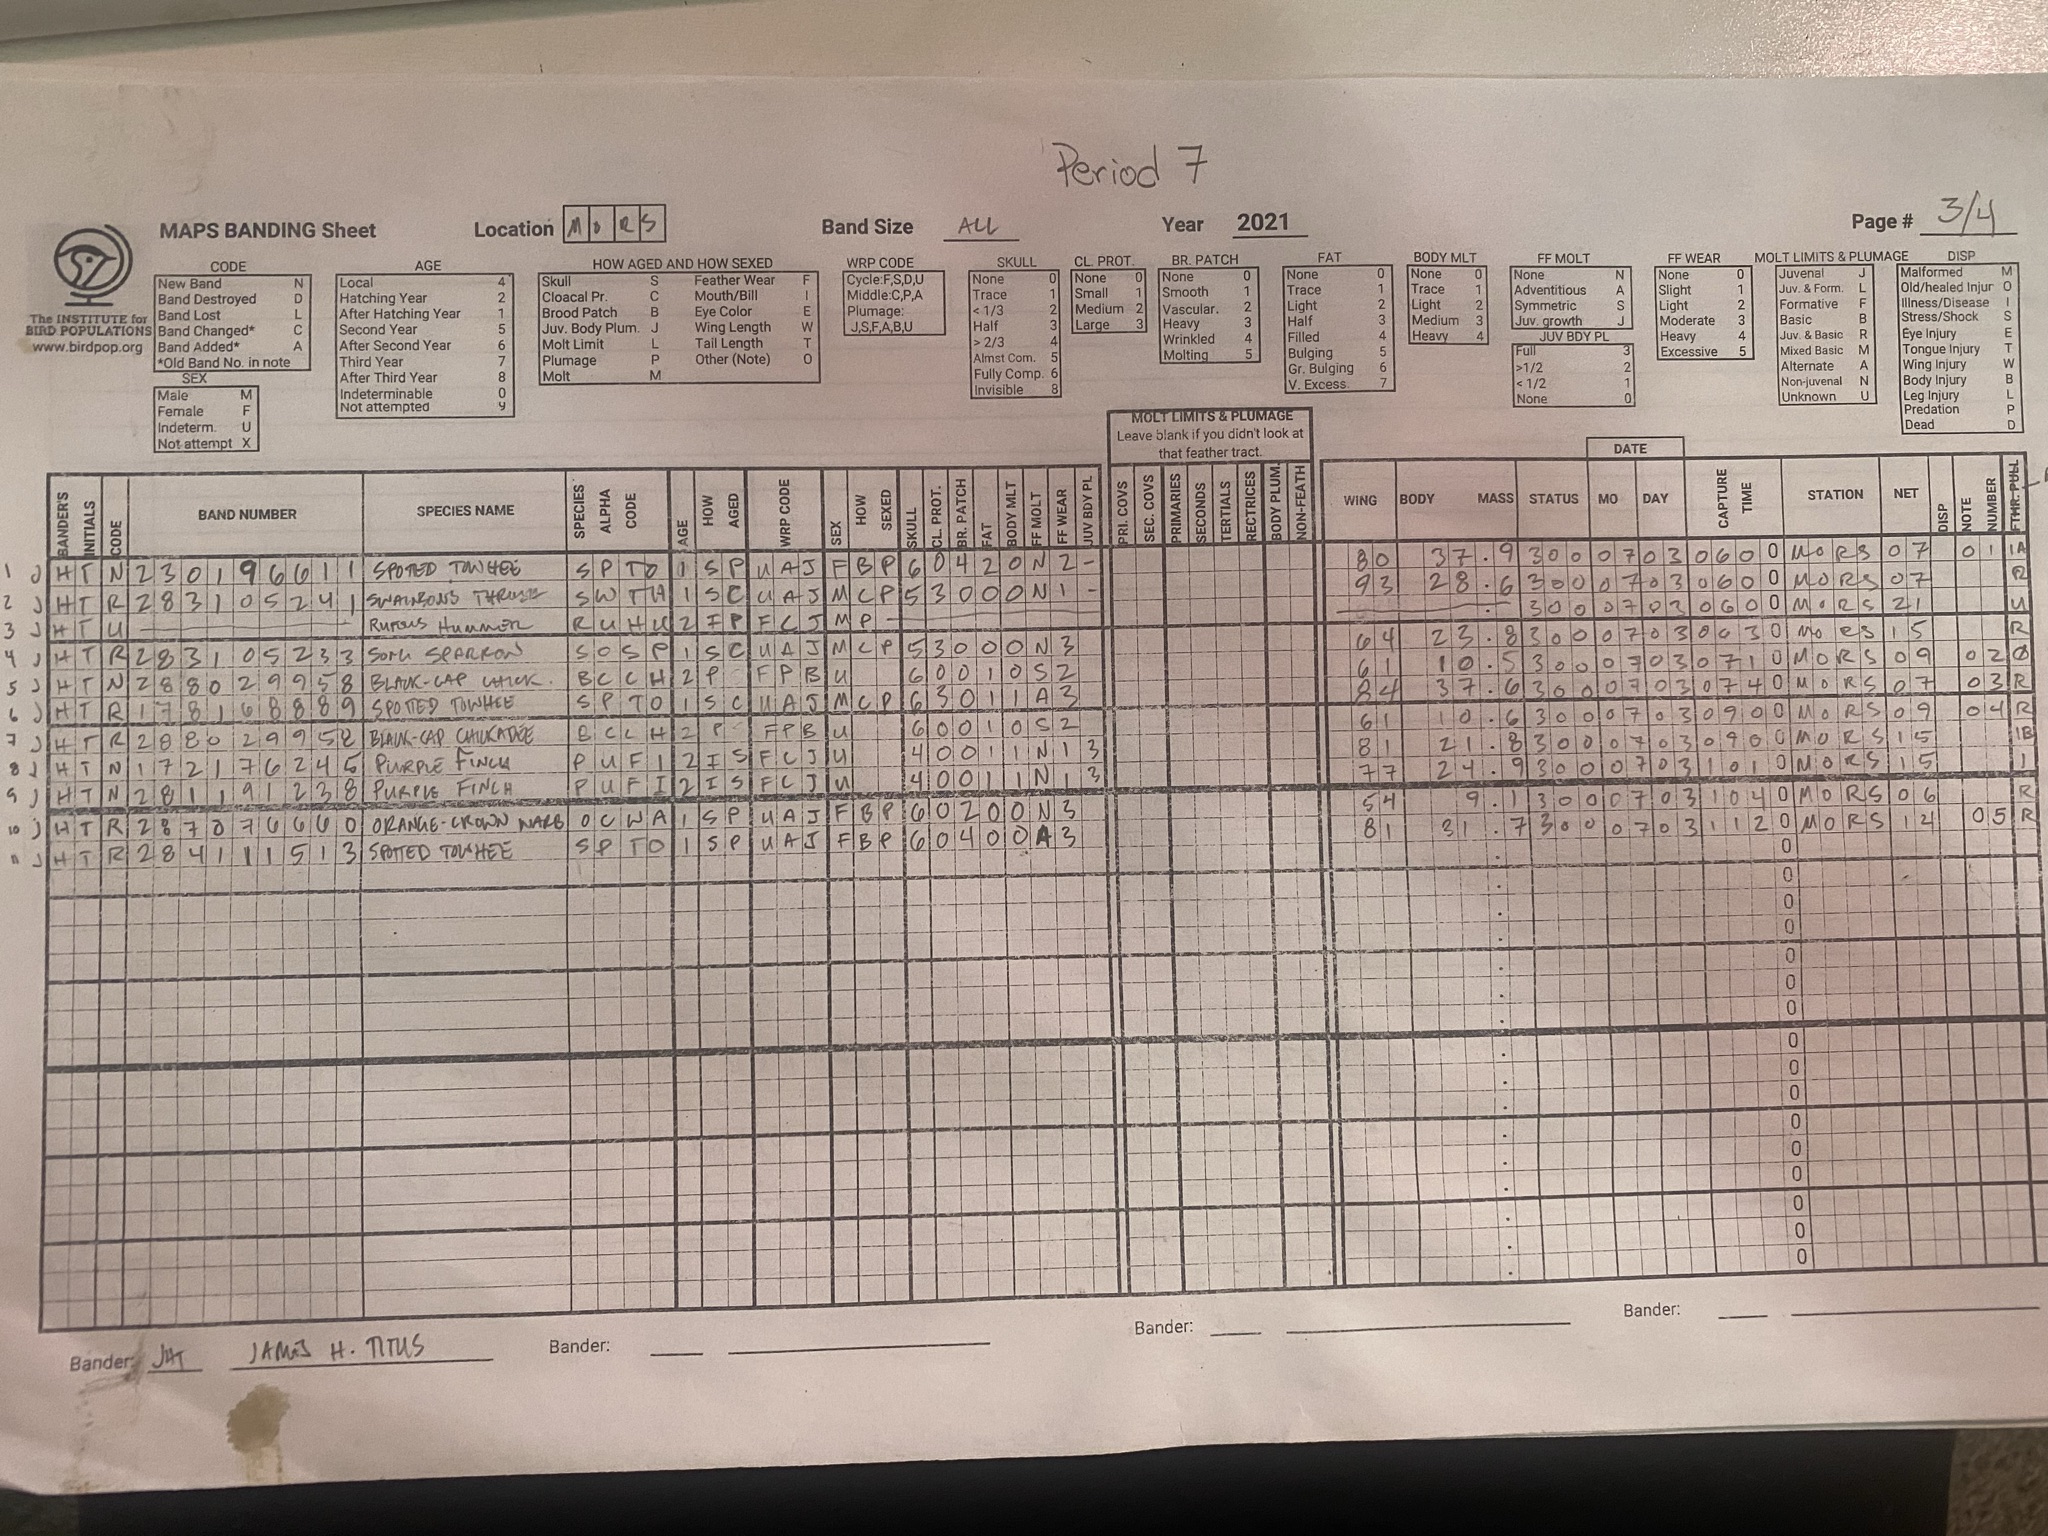 Period 7
MAPS BANDING Sheet Location M O R S Band Size ALL Year 2021 Page # 3/4
The INSTITUTE for BIRD POPULATIONS
www.birdpop.org
CODE
New Band N
Band Destroyed D
Band Lost L
Band Changed* C
Band Added* A
*Old Band No. in note
SEX
Male M
Female F
Indeterm. U
Not attempt X
AGE
Local 4
Hatching Year 2
After Hatching Year 1
Second Year 5
After Second Year 6
Third Year 7
After Third Year 8
Indeterminable 0
Not attempted 9
HOW AGED AND HOW SEXED
Skull S Feather Wear F
Cloacal Pr. C Mouth/Bill I
Brood Patch B Eye Color E
Juv. Body Plum. J Wing Length W
Molt Limit L Tail Length T
Plumage P Other (Note) O
Molt M
WRP CODE
Cycle:F,S,D,U
Middle:C,P,A
Plumage:
J,S,F,A,B,U
SKULL
None 0
Trace 1
< 1/3 2
Half 3
> 2/3 4
Almst Com. 5
Fully Comp. 6
Invisible 8
CL. PROT.
None 0
Small 1
Medium 2
Large 3
BR. PATCH
None 0
Smooth 1
Vascular. 2
Heavy 3
Wrinkled 4
Molting 5
FAT
None 0
Trace 1
Light 2
Half 3
Filled 4
Bulging 5
Gr. Bulging 6
V. Excess. 7
BODY MLT
None 0
Trace 1
Light 2
Medium 3
Heavy 4
FF MOLT
None N
Adventitious A
Symmetric S
Juv. growth J
JUV BDY PL
Full 3
>1/2 2
< 1/2 1
None 0
FF WEAR
None 0
Slight 1
Light 2
Moderate 3
Heavy 4
Excessive 5
MOLT LIMITS & PLUMAGE
Juvenal J
Juv. & Form. L
Formative F
Basic B
Juv. & Basic R
Mixed Basic M
Alternate A
Non-juvenal N
Unknown U
DISP
Malformed M
Old/healed Injur O
Illness/Disease I
Stress/Shock S
Eye Injury E
Tongue Injury T
Wing Injury W
Body Injury B
Leg Injury L
Predation P
Dead D
MOLT LIMITS & PLUMAGE
Leave blank if you didn't look at
that feather tract.
DATE
BANDER'S INITIALS CODE BAND NUMBER SPECIES NAME SPECIES ALPHA CODE AGE HOW AGED WRP CODE SEX HOW SEXED SKULL CL. PROT. BR. PATCH FAT BODY MLT FF MOLT FF WEAR JUV BDY PL PRI. COVS SEC. COVS PRIMARIES SECONDS TERTIALS RECTRICES BODY PLUM. NON-FEATH WING BODY MASS STATUS MO DAY CAPTURE TIME STATION NET DISP NOTE NUMBER FTHR. PULL
1 JHT N 230196611 SPOTED TOWHEE SPTO 1 SP UAJ F BP 6 0 4 2 0 N 2 - 80 37.9 300 07 03 060 0 MORS 07 01 1A
2 JHT R 283105241 SWAINSONS THRUSH SWTH 1 SC UAJ M CP 5 3 0 0 0 N 1 - 93 28.6 300 07 03 060 0 MORS 07 R
3 JHT U RUFOUS HUMMER RUHU 2 IP FCJ M P - 300 07 03 060 0 MORS 21 U
4 JHT R 283105233 SONG SPARROW SOSP 1 SC UAJ M CP 5 3 0 0 0 N 3 64 23.8 300 07 03 063 0 MORS 15 R
5 JHT N 288029958 BLACK-CAP CHICK. BCCH 2 P FPB U 6 0 0 1 0 S 2 61 10.5 300 07 03 071 0 MORS 09 02 0
6 JHT R 178168889 SPOTTED TOWHEE SPTO 1 SC UAJ M CP 6 3 0 1 1 A 3 84 37.6 300 07 03 074 0 MORS 07 03 R
7 JHT R 288029958 BLACK-CAP CHICKADEE BCCH 2 P FPB U 6 0 0 1 0 S 2 61 10.6 300 07 03 090 0 MORS 09 04 R
8 JHT N 172176245 PURPLE FINCH PUFI 2 IS FCJ U 4 0 0 1 1 N 1 3 81 21.8 300 07 03 090 0 MORS 15 1B
9 JHT N 281191238 PURPLE FINCH PUFI 2 IS FCJ U 4 0 0 1 1 N 1 3 77 24.9 300 07 03 101 0 MORS 15 1
10 JHT R 287076660 ORANGE-CROWN WARB OCWA 1 SP UAJ F BP 6 0 2 0 0 N 3 54 9.1 300 07 03 104 0 MORS 06 R
11 JHT R 284111513 SPOTTED TOWHEE SPTO 1 SP UAJ F BP 6 0 4 0 0 A 3 81 31.7 300 07 03 112 0 MORS 14 05 R
0
0
0
0
0
0
0
0
0
0
0
0
0
0
0
0
Bander: JHT JAMES H. TITUS Bander: Bander: Bander: